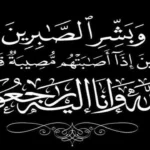 وَبَشِّرِ ٱلصَّٰبِرِينَ
ين إِذَآ أَصَٰبَتْهُم مُّصِيبَةٌ
لله وإنا إليه راجعو